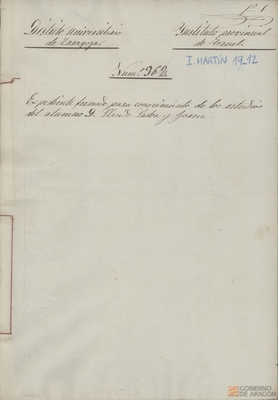 Distrito universitario
de Zaragoza.
Instituto provincial
de Teruel.
I. MARTÍN 19_12
Num.º 962.
Expediente formado para conocimiento de los estudios
del alumno D. y Garcia
GOBIERNO
DE ARAGON